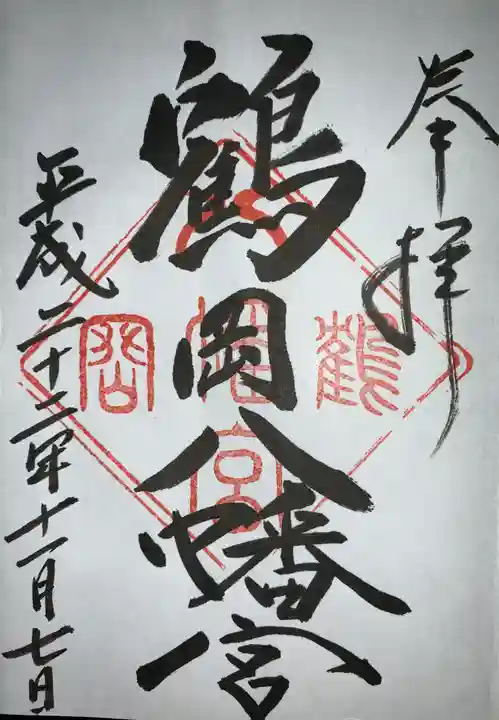 奉拝
鶴岡八幡宮
平成二十二年十一月七日
鶴
岡
八
幡
宮